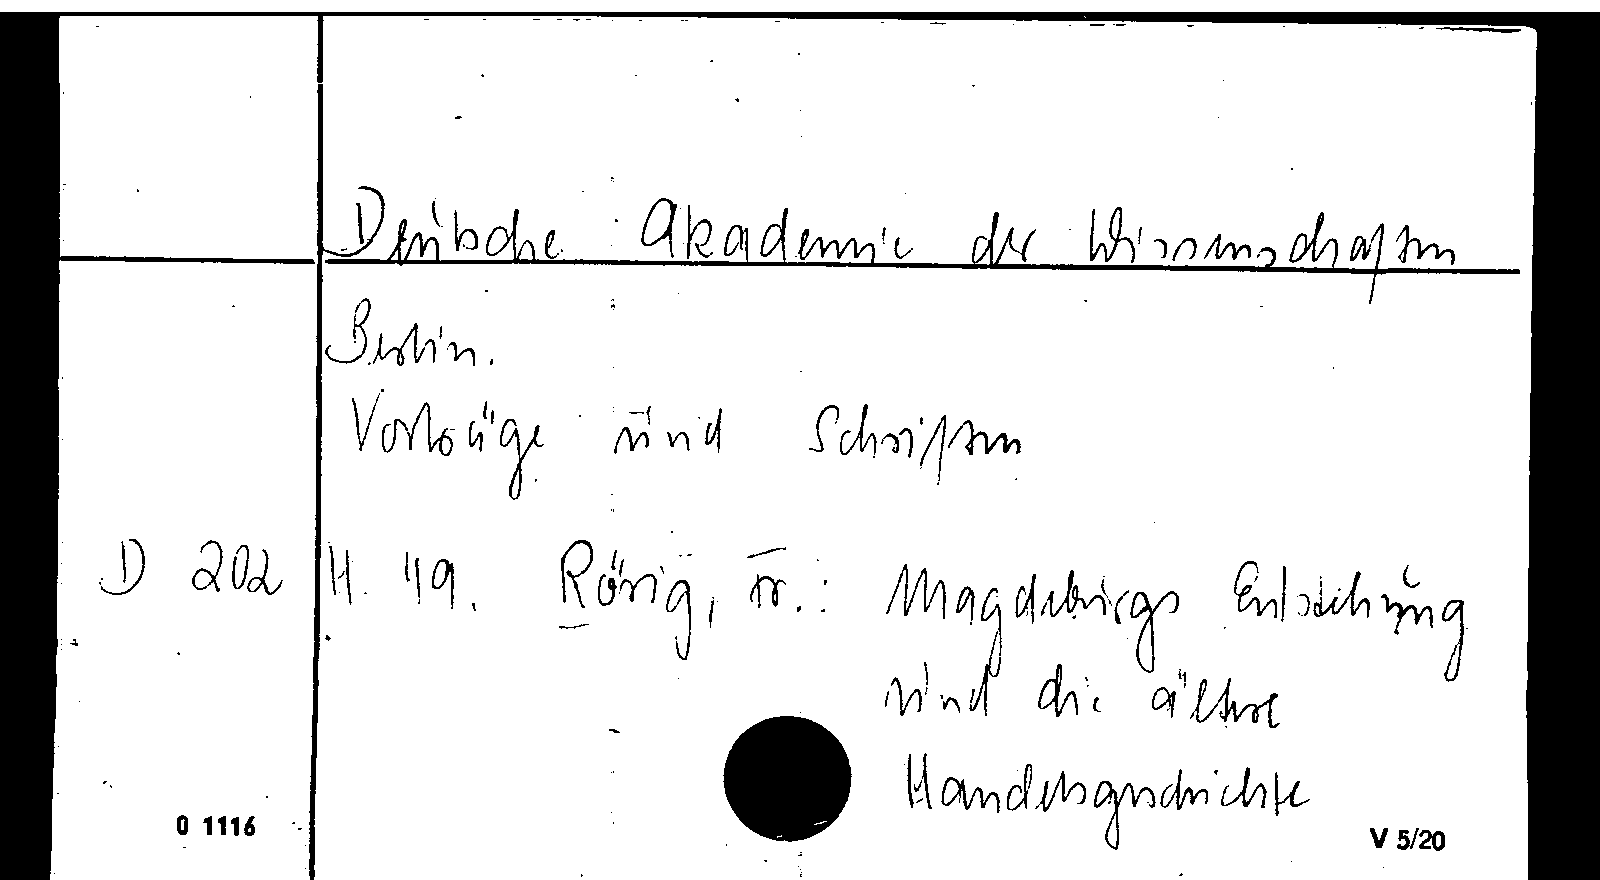 Deutsche Akademie der Wissenschaften
Berlin.
Vorträge und Schriften
D 202 H. 49. Rörig, Fr.: Magdeburgs Entstehung
und die ältere
Handelsgeschichte
0 1116
V 5/20